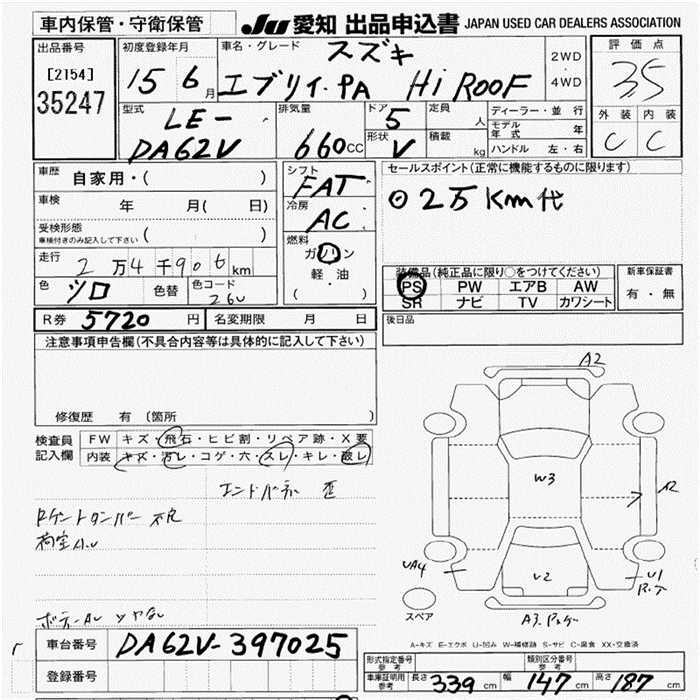 車内保管・守衛保管
JU 愛知 出品申込書 JAPAN USED CAR DEALERS ASSOCIATION
出品番号
[2154]
35247
初度登録年月
15 6月
車名・グレード スズキ
エブリイ・PA Hi ROOF
2WD
・
4WD
評価点
3.5
外装 内装
C C
型式 LE-
DA62V
排気量
660cc
ドア 5
形状 V
定員 人
積載 kg
ディーラー・並行
モデル年式 年
ハンドル 左・右
車歴 自家用・( )
車検 年 月( 日)
受検形態
車検付きのみ記入して下さい ( )
走行 2万4千906km
色 シロ 色替 色コード 26U
シフト FAT
冷房 AC
燃料
ガソリン
軽・油
( )
セールスポイント(正常に機能するものに限ります)
⊙ 2万Km代
装備品(純正品に限り○をつけてください)
PS PW エアB AW
SR ナビ TV カワシート
新車保証書
有・無
後日品
R券 5720円 名変期限 月 日
注意事項申告欄(不具合内容等は具体的に記入して下さい)
修復歴 有(箇所 )
検査員
記入欄
FW キズ・飛石・ヒビ割・リペア跡・X要
内装 キズ・汚レ・コゲ・穴・スレ・キレ・破レ
不良
A2
W3
A2
UA4
U2
U1
スペア
A-キズ E-エクボ U-凹み W-補修跡 S-サビ C-腐食 XX-交換済
車台番号 DA62V-397025
登録番号
形式指定番号 参考
類別区分番号 参考
車庫証明用 参考 長さ 339cm 幅 147cm 高さ 187cm